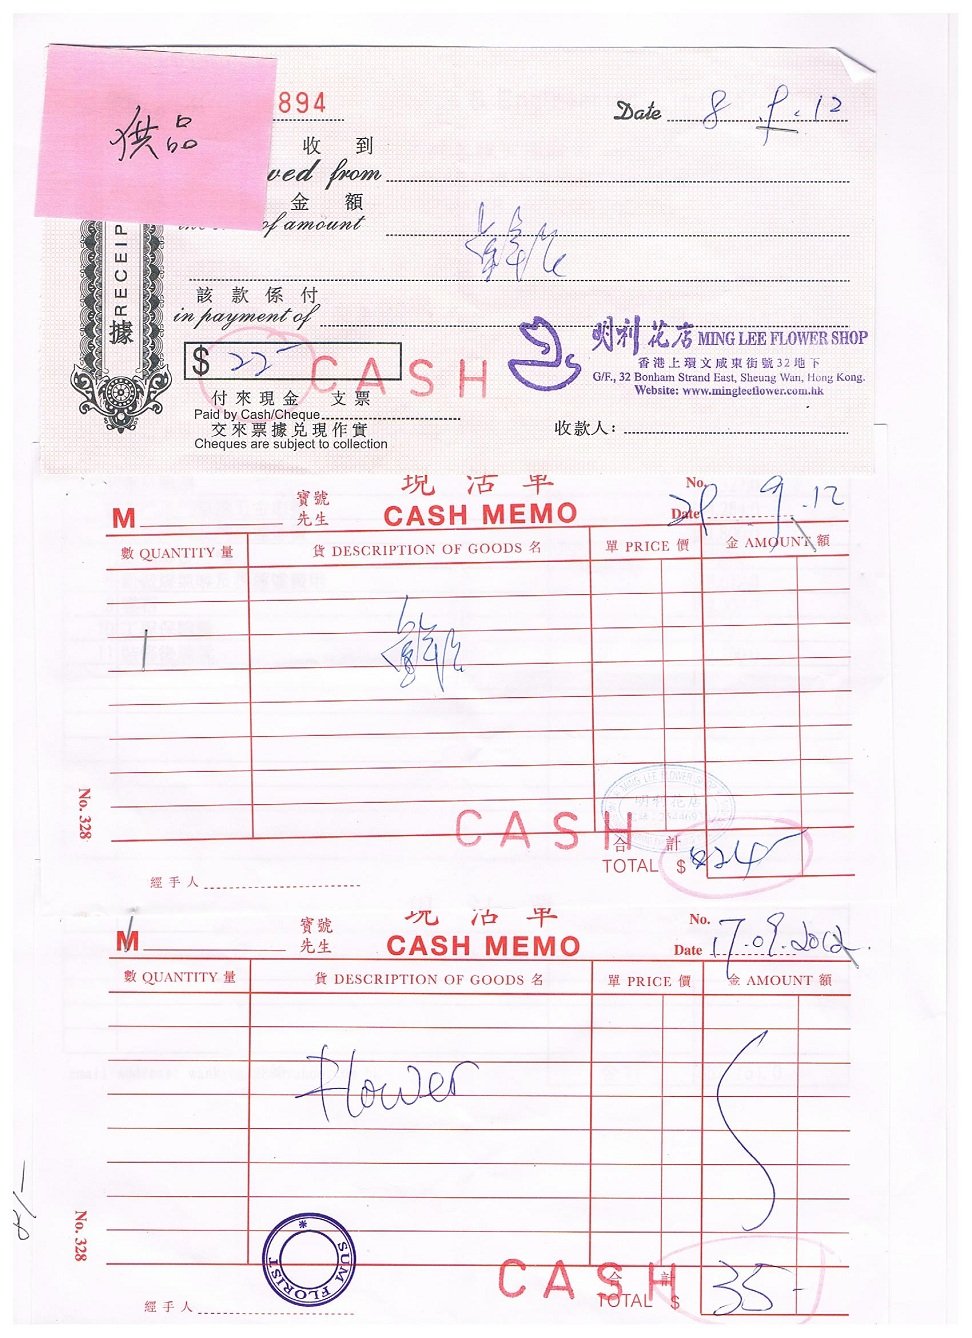 供品
894
Date 8.9.12
收到
ved from
金額
of amount
鮮花
RECEIP
據
該款係付
in payment of
$ 22-
CASH
明利花店 MING LEE FLOWER SHOP
香港上環文咸東街號32地下
G/F., 32 Bonham Strand East, Sheung Wan, Hong Kong.
Website: www.mingleeflower.com.hk
付來現金 支票
Paid by Cash/Cheque
交來票據兑現作實
Cheques are subject to collection
收款人:
現沽單
No.
M 寶號
先生
CASH MEMO
Date 9.12
數 QUANTITY 量 貨 DESCRIPTION OF GOODS 名 單 PRICE 價 金 AMOUNT 額
1 鮮花
MING LEE FLOWER SHOP
明利花店
No. 328
CASH
合計
TOTAL $ 24-
經手人
現沽單
No.
M 寶號
先生
CASH MEMO
Date 17.09.2012.
數 QUANTITY 量 貨 DESCRIPTION OF GOODS 名 單 PRICE 價 金 AMOUNT 額
Flower
No. 328
SUM FLORIST
CASH
合計
TOTAL $ 35-
經手人